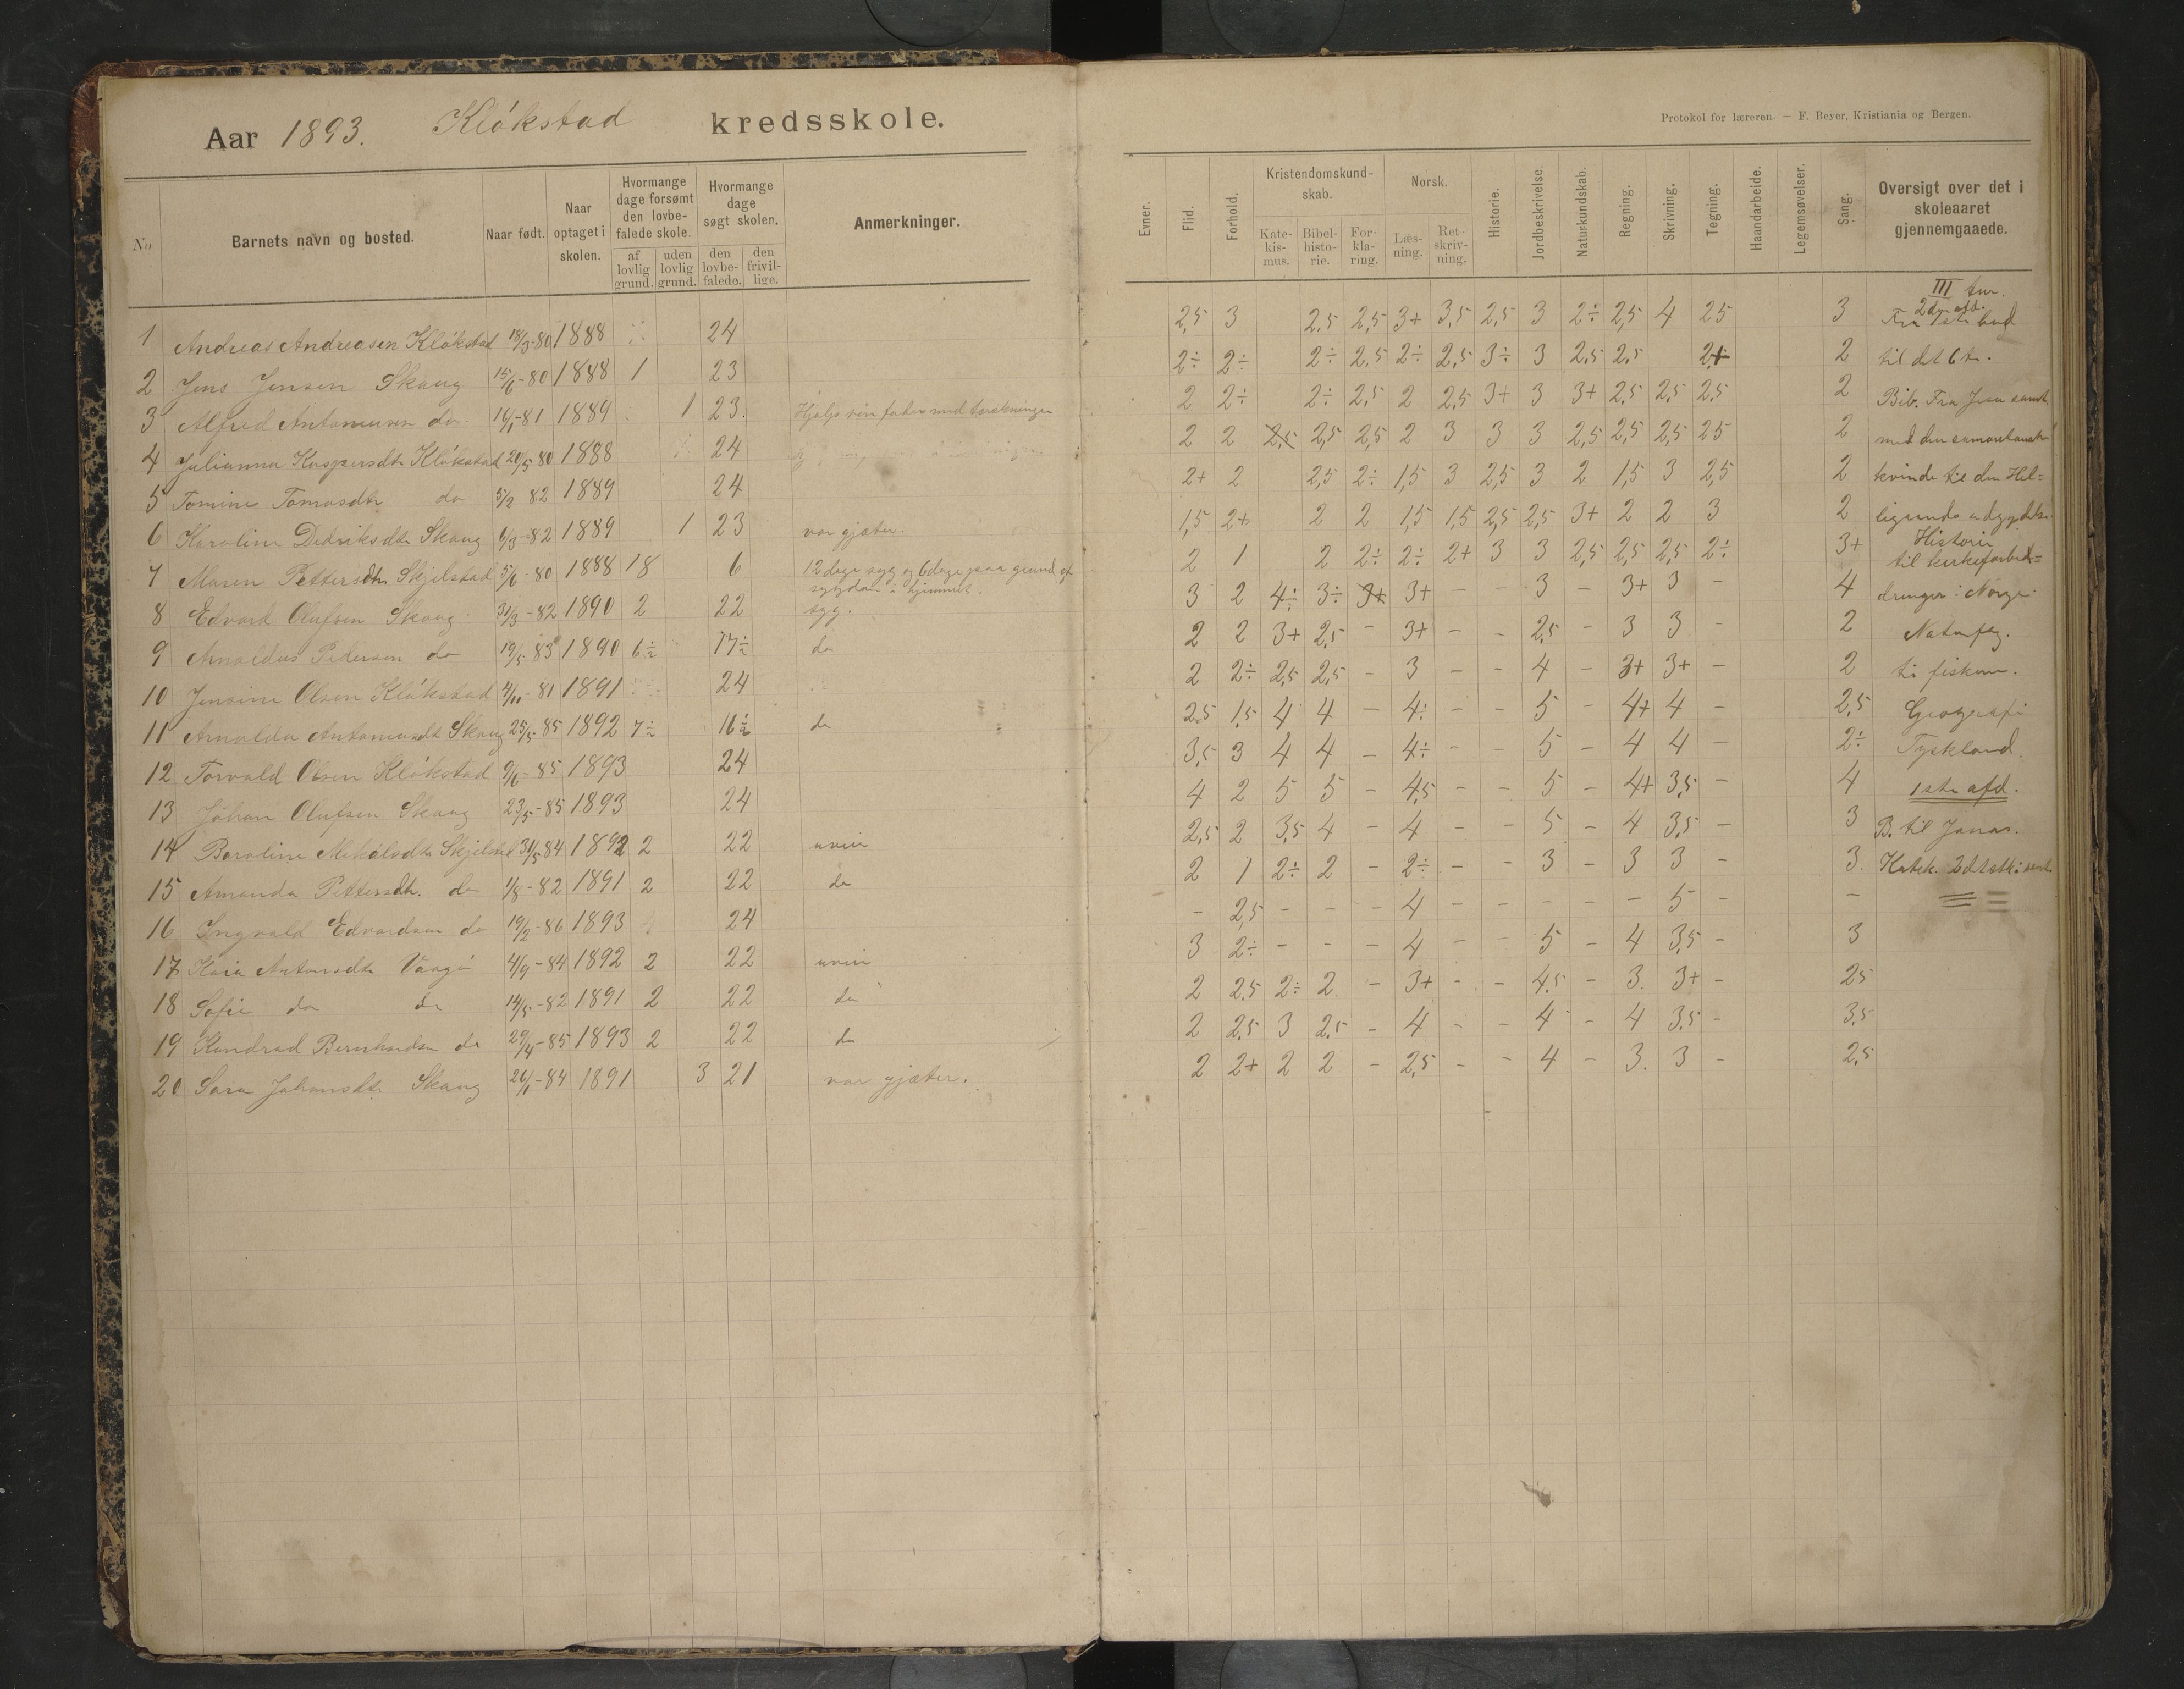 Aar 1893. Kløkstad kredsskole.
Protokol for læreren. — F. Beyer, Kristiania og Bergen.
No
Barnets navn og bosted.
Naar født.
Naar optaget i skolen.
Hvormange dage forsømt den lovbe-falede skole.
af lovlig grund.
uden lovlig grund.
Hvormange dage søgt skolen.
den lovbe-falede.
den frivil-lige.
Anmerkninger.
Evner.
Flid.
Forhold.
Kristendomskund-skab.
Kate-kis-mus.
Bibel-histo-rie.
For-kla-ring.
Norsk.
Læs-ning.
Ret-skriv-ning.
Historie.
Jordbeskrivelse.
Naturkundskab.
Regning.
Skrivning.
Tegning.
Haandarbeide.
Legemsøvelser.
Sang.
Oversigt over det i skoleaaret gjennemgaaede.
1 Andreas Andreasen Kløkstad 18/3-80 1888 24
2 Jens Jensen Skaug 15/6-80 1888 1 23
3 Alfred Antonsen do 16/1-81 1889 1 23. Hjalp sin fader med
4 Julianna Kaspersdtr Kløkstad 20/5 80 1888 24
5 Tomine Tomasdtr do 5/2 82 1889 24
6 Karoline Dedriksdtr Skaug 6/3-82 1889 1 23 var gjæter.
7 Maren Pettersdtr Skjelstad 5/6-80 1888 18 6 12 dage syg og 6 dage paa grund af
sygdom i hjemmet.
8 Edvard Olufsen Skaug 31/3-82 1890 2 22 syg.
9 Arnoldus Pedersen do 19/5 83 1890 6½ 17½ do
10 Jensine Olsen Kløkstad 4/10-81 1891 24
11 Arnolda Skaug 25/5-85 1892 7½ 16½ do
12 Torvald Olsen Kløkstad 9/6-85 1893 24
13 Johan Olufsen Skaug 23/5-85 1893 24
14 Baroline Mikalsdtr 31/5 84 1892 2 22 uveir
15 Amanda Pettersdtr. do 1/8-82 1891 2 22 do
16 Ingvald Edvardsen do 19/2-86 1893 24
17 Kaia Antonsdtr Vaagø 4/9-84 1892 2 22 uveir
18 Sofie do do 14/5-82 1891 2 22 do
19 Kondrad Bernhardsen do 29/4-85 1893 2 22 do
20 Sara Johansdtr. Skaug 26/1-84 1891 3 21 var gjæter.
2,5 3 2,5 2,5 3+ 3,5 2,5 3 2÷ 2,5 4 2,5 3
2÷ 2÷ 2÷ 2,5 2÷ 2,5 3÷ 3 2,5 2,5 2+ 2
2 2÷ 2÷ 2,5 2 2,5 3+ 3 3+ 2,5 2,5 2,5 2
2 2 2,5 2,5 2,5 2 3 3 3 2,5 2,5 2,5 2,5 2
2+ 2 2,5 2÷ 1,5 3 2,5 3 2 1,5 3 2,5 2
1,5 2+ 2 2 1,5 1,5 2,5 2,5 3+ 2 2 3 2
2 1 2 2÷ 2÷ 2+ 3 3 2,5 2,5 2,5 2÷ 3+
3 2 4÷ 3÷ 3+ 3+ - - 3 - 3+ 3 - 4
2 2 3+ 2,5 - 3+ - - 2,5 - 3 3 - 2
2 2÷ 2,5 2,5 - 3 - - 4 - 3+ 3+ - 2
2,5 1,5 4 4 - 4÷ - - 5 - 4+ 4 - 2,5
3,5 3 4 4 - 4÷ - - 5 - 4 4 - 2÷
4 2 5 5 - 4,5 - - 5 - 4+ 3,5 - 4
2,5 2 3,5 4 - 4 - - 5 - 4 3,5 - 3
2 1 2÷ 2 - 2÷ - - 3 - 3 3 - 3
- 2,5 - - - 4 - - - - - 5 - -
3 2÷ - - - 4 - - 5 - 4 3,5 - 3
2 2,5 2÷ 2 - 3+ - - 4,5 - 3. 3+ - 2,5
2 2,5 3 2,5 - 4 - - 4 - 4 3,5 - 3,5
2 2+ 2 2 - 2,5 - - 4 - 3. 3 - 2,5
III
2den afd.
Fra 1ste bud
til det 6te.
Bib. Fra Jesu samt.
med den samaritanske
kvinde til den Hel-
ligaands udgydelse.
Historie
til kirkeforbed=
dringer i Norge
Naturfag.
til fiskene.
Geografi
Tyskland.
1ste afd.
B. til Jonas.
Katek.